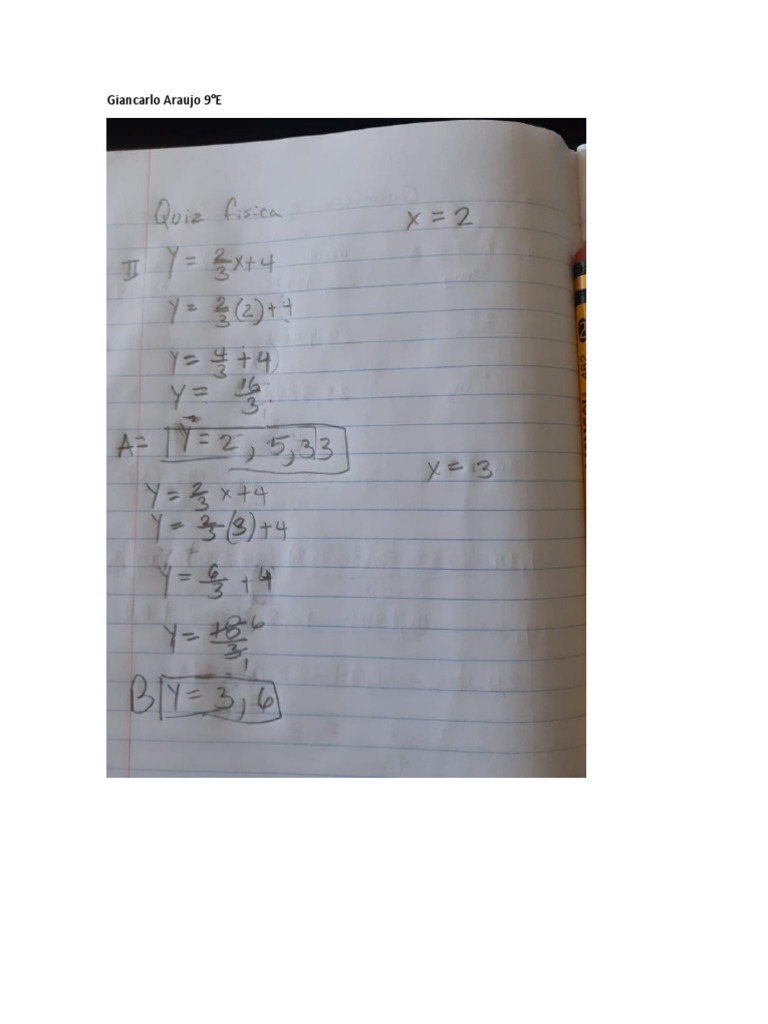 Giancarlo Araujo 9°E
Quiz física
x = 2
II Y = 2/3 x+4
Y = 2/3 (2)+4
Y = 4/3 + 4
Y = 16/3
A= Y = 2 , 5,33
x = 3
Y = 2/3 x+4
Y = 2/3 (3)+4
Y = 6/3 + 4
Y = 18/3 6 1
B Y = 3, 6